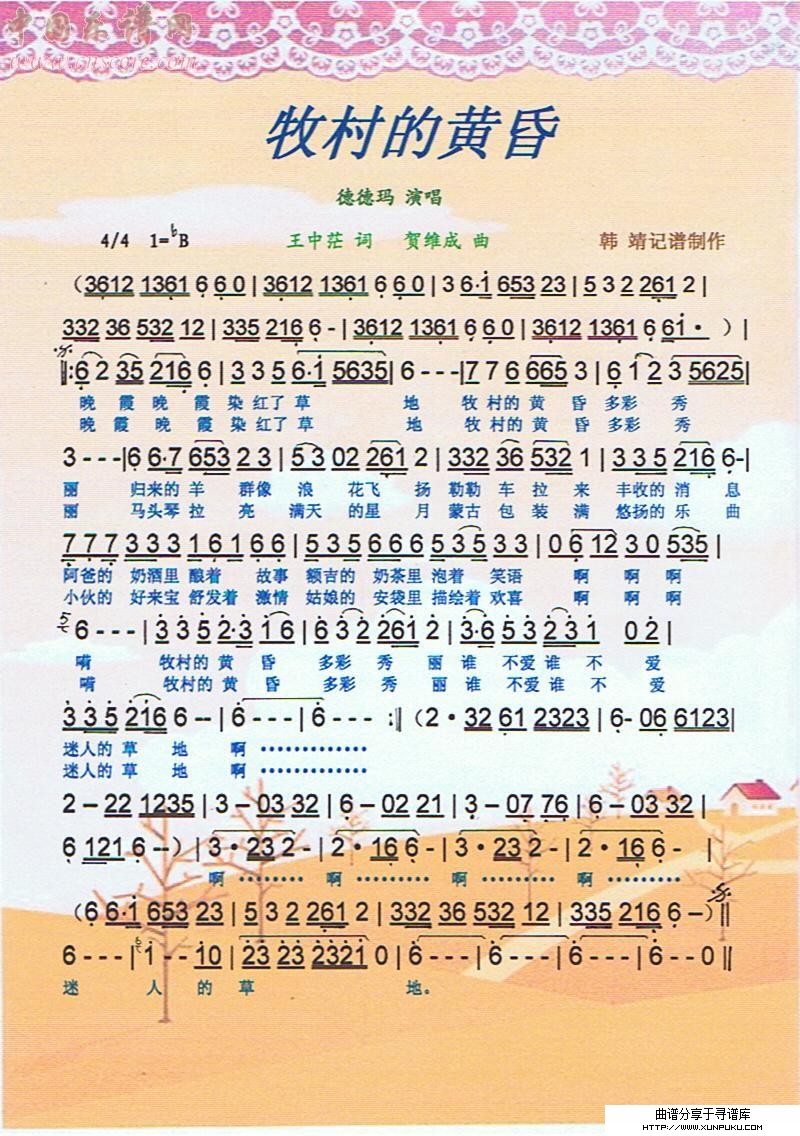 中国乐谱网
www.cnscore.com
牧村的黄昏
德德玛 演唱
4/4 1=♭B 王中茫 词 贺维成 曲 韩 靖记谱制作
(3612 1361 6 6 0 | 3612 1361 6 6 0 | 3 6·1 653 23 | 5 3 2 261 2 |
332 36 532 12 | 335 216 6 - | 3612 1361 6 6 0 | 3612 1361 6 61· ) |
|: 6 2 35 216 6 | 3 3 5 6·1 5635 | 6 - - - | 7 7 6 665 3 | 6 1 2 3 5625 |
晚 霞 晚 霞 染 红了 草 地 牧 村的 黄 昏 多彩 秀
晚 霞 晚 霞 染 红了 草 地 牧 村的 黄 昏 多彩 秀
3 - - - | 6 6·7 653 2 3 | 5 3 02 261 2 | 332 36 532 1 | 3 3 5 216 6- |
丽 归来的 羊 群像 浪 花飞 扬 勒勒 车 拉 来 丰收的 消 息
丽 马头琴 拉 亮 满天 的星 月 蒙古 包 装 满 悠扬的 乐 曲
7 7 7 3 3 3 1 6 1 6 6 | 5 3 5 6 6 6 5 3 5 3 3 | 0 6 12 3 0 535 |
阿爸的 奶酒里 酿着 故事 额吉的 奶茶里 泡着 笑语 啊 啊 啊
小伙的 好来宝 舒发着 激情 姑娘的 安袋里 描绘着 欢喜 啊 啊 啊
6 - - - | 3 3 5 2·3 1 6 | 3 3 2 261 2 | 3·6 5 3 2 3 1 0 2 |
嗬 牧村的 黄 昏 多彩 秀 丽 谁 不爱 谁 不 爱
嗬 牧村的 黄 昏 多彩 秀 丽 谁 不爱 谁 不 爱
3 3 5 216 6 -- | 6 - - - | 6 - - - :| (2 · 32 61 2323 | 6- 06 6123 |
迷人的 草 地 啊 ··············
迷人的 草 地 啊 ··············
2 – 22 1235 | 3 – 03 32 | 6 – 02 21 | 3 – 07 76 | 6 – 03 32 |
6 121 6 --) | 3 · 23 2 - | 2 · 16 6 - | 3 · 23 2 - | 2 · 16 6 - |
啊 ········· 啊 ········· 啊 ········· 啊 ·········
(6 6·1 653 23 | 5 3 2 261 2 | 332 36 532 12 | 335 216 6 –)||
6 - - - | 1 - - 10 | 23 23 2321 0 | 6 - - - | 6 - - - | 6 - - 0 ||
迷 人 的 草 地。
曲谱分享于寻谱库
HTTP://WWW.XUNPUKU.COM